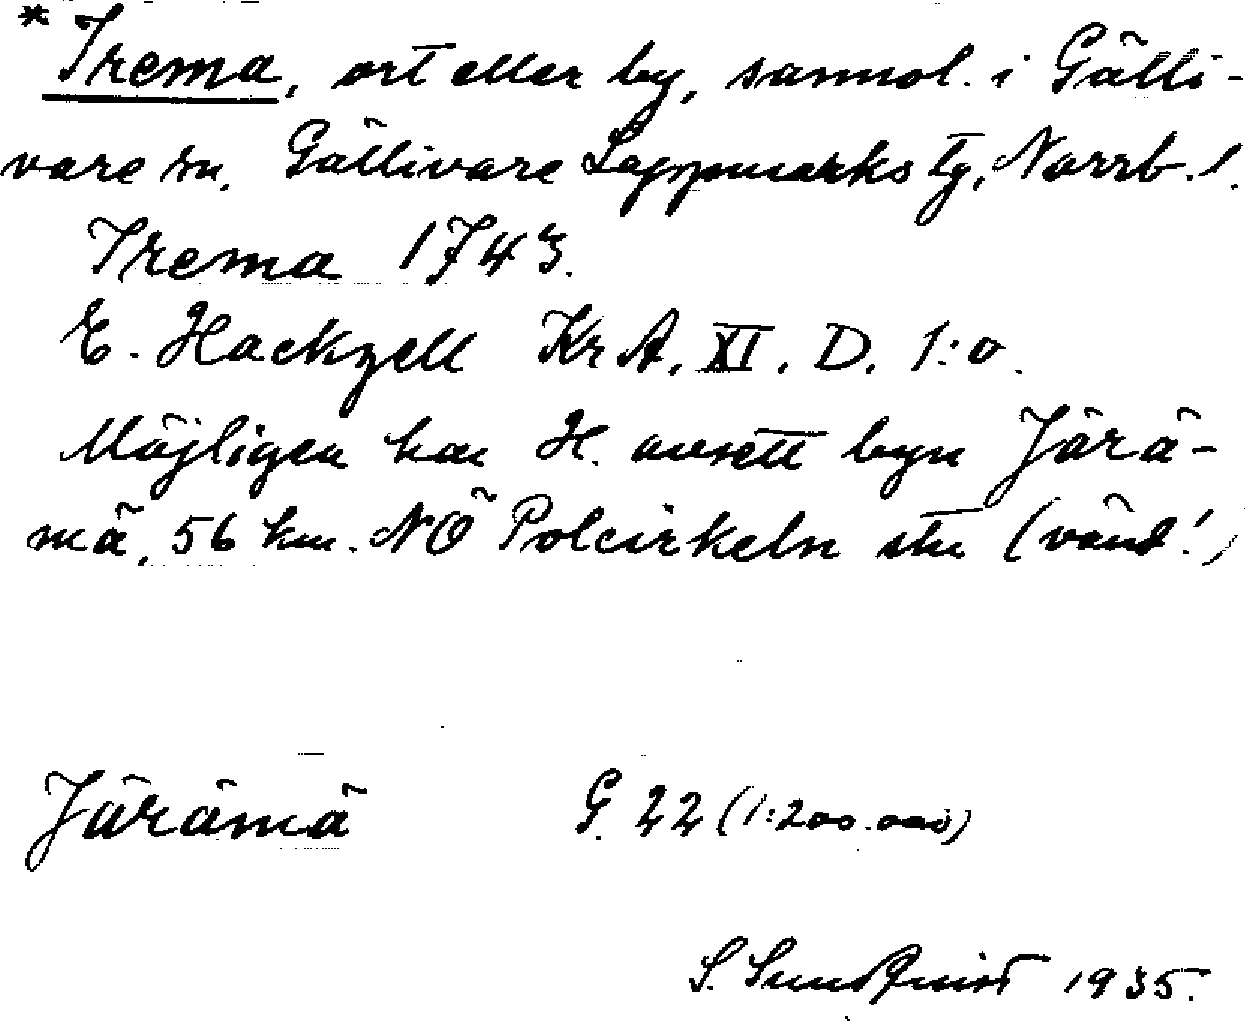 * Irema, ort eller by, sannol. i Gälli-
vare sn. Gällivare Lappmarks tg, Norrb. l.
Irema 1743.
E. Hackzell KrA. XI. D. 1:o.
Möjligen har H. avsett byn Järä-
mä, 56 km. NÖ Polcirkeln stn (vänd!)
Järämä G. 22 (1:200.000)
S. Sundqvist 1935.